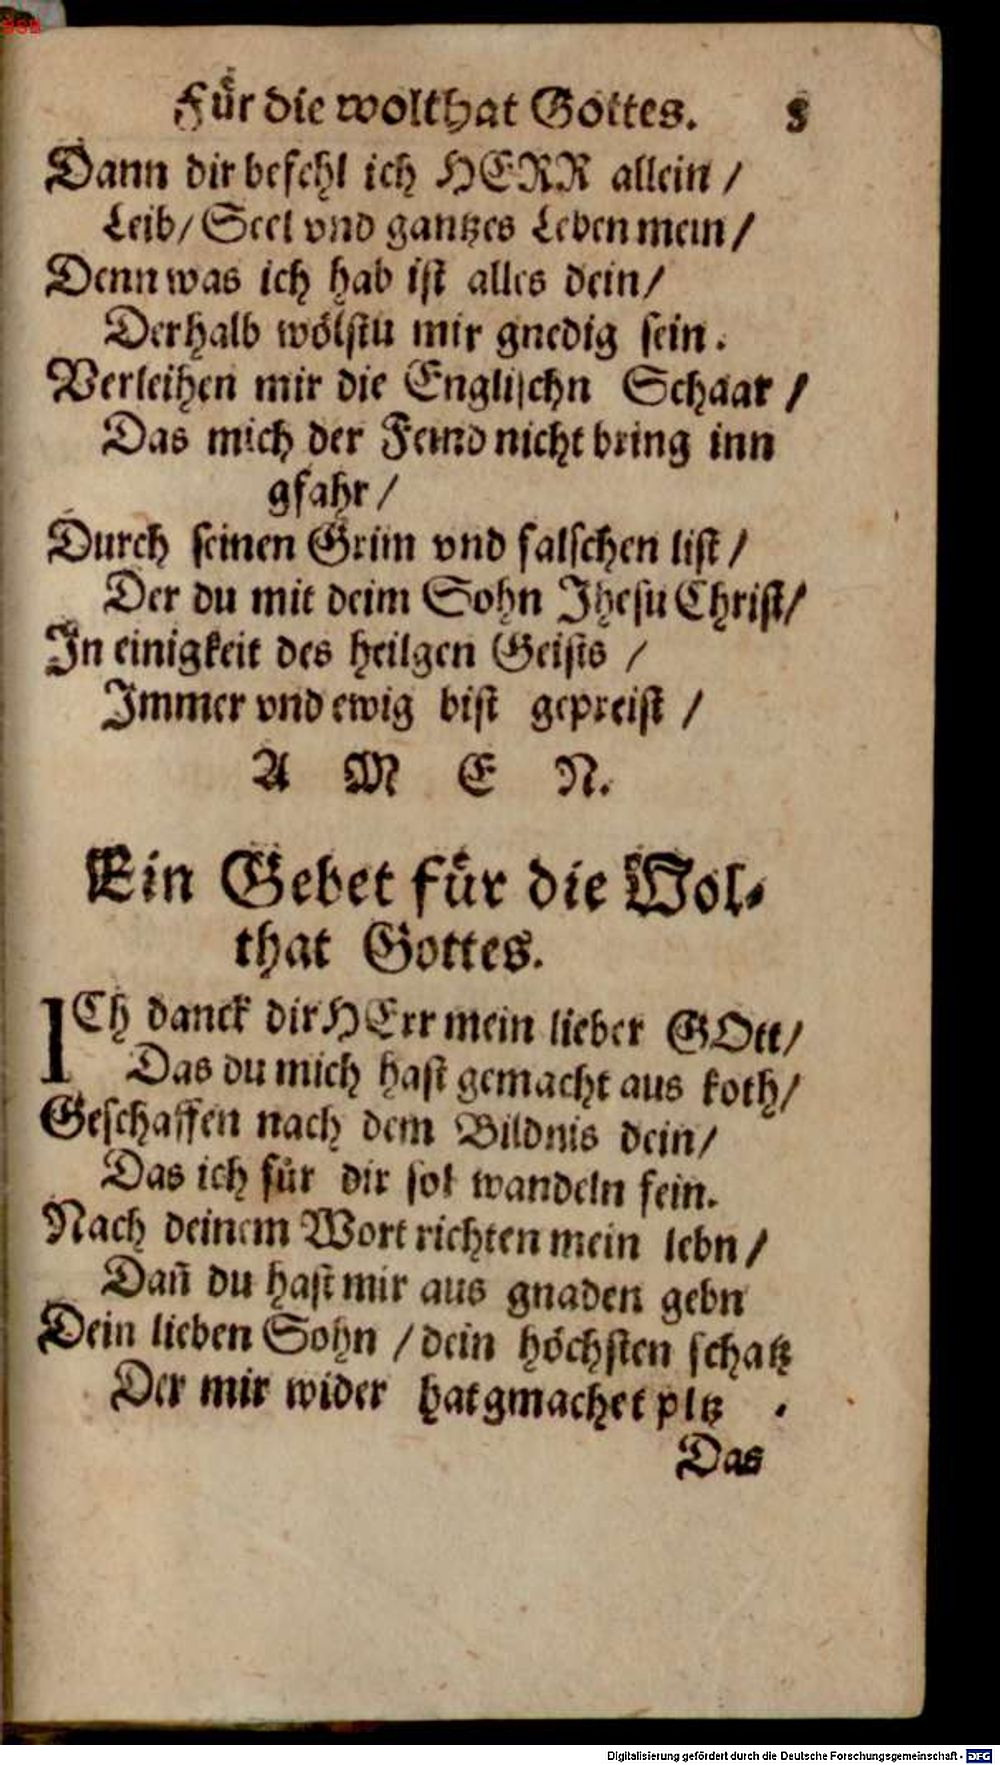 Fuͤr die wolthat Gottes. 8
Dann dir befehl ich HERR allein /
Leib / Seel vnd gantzes Leben mein /
Denn was ich hab ist alles dein /
Derhalb woͤlstu mir gnedig sein .
Verleihen mir die Englischn Schaar /
Das mich der Feind nicht bring inn
gfahr /
Durch seinen Grim vnd falschen list /
Der du mit deim Sohn Jhesu Christ /
Jn einigkeit des heilgen Geists /
Jmmer vnd ewig bist gepreist /
A M E N.
Ein Gebet fuͤr die Wol-
that Gottes.
ICh danck dir HErr mein lieber GOtt /
Das du mich hast gemacht aus koth /
Geschaffen nach dem Bildnis dein /
Das ich fuͤr dir sol wandeln fein.
Nach deinem Wort richten mein lebn /
Dañ du hast mir aus gnaden gebn
Dein lieben Sohn / dein hoͤchsten schatz
Der mir wider hat gmachet pltz .
Das
Digitalisierung gefördert durch die Deutsche Forschungsgemeinschaft - DFG